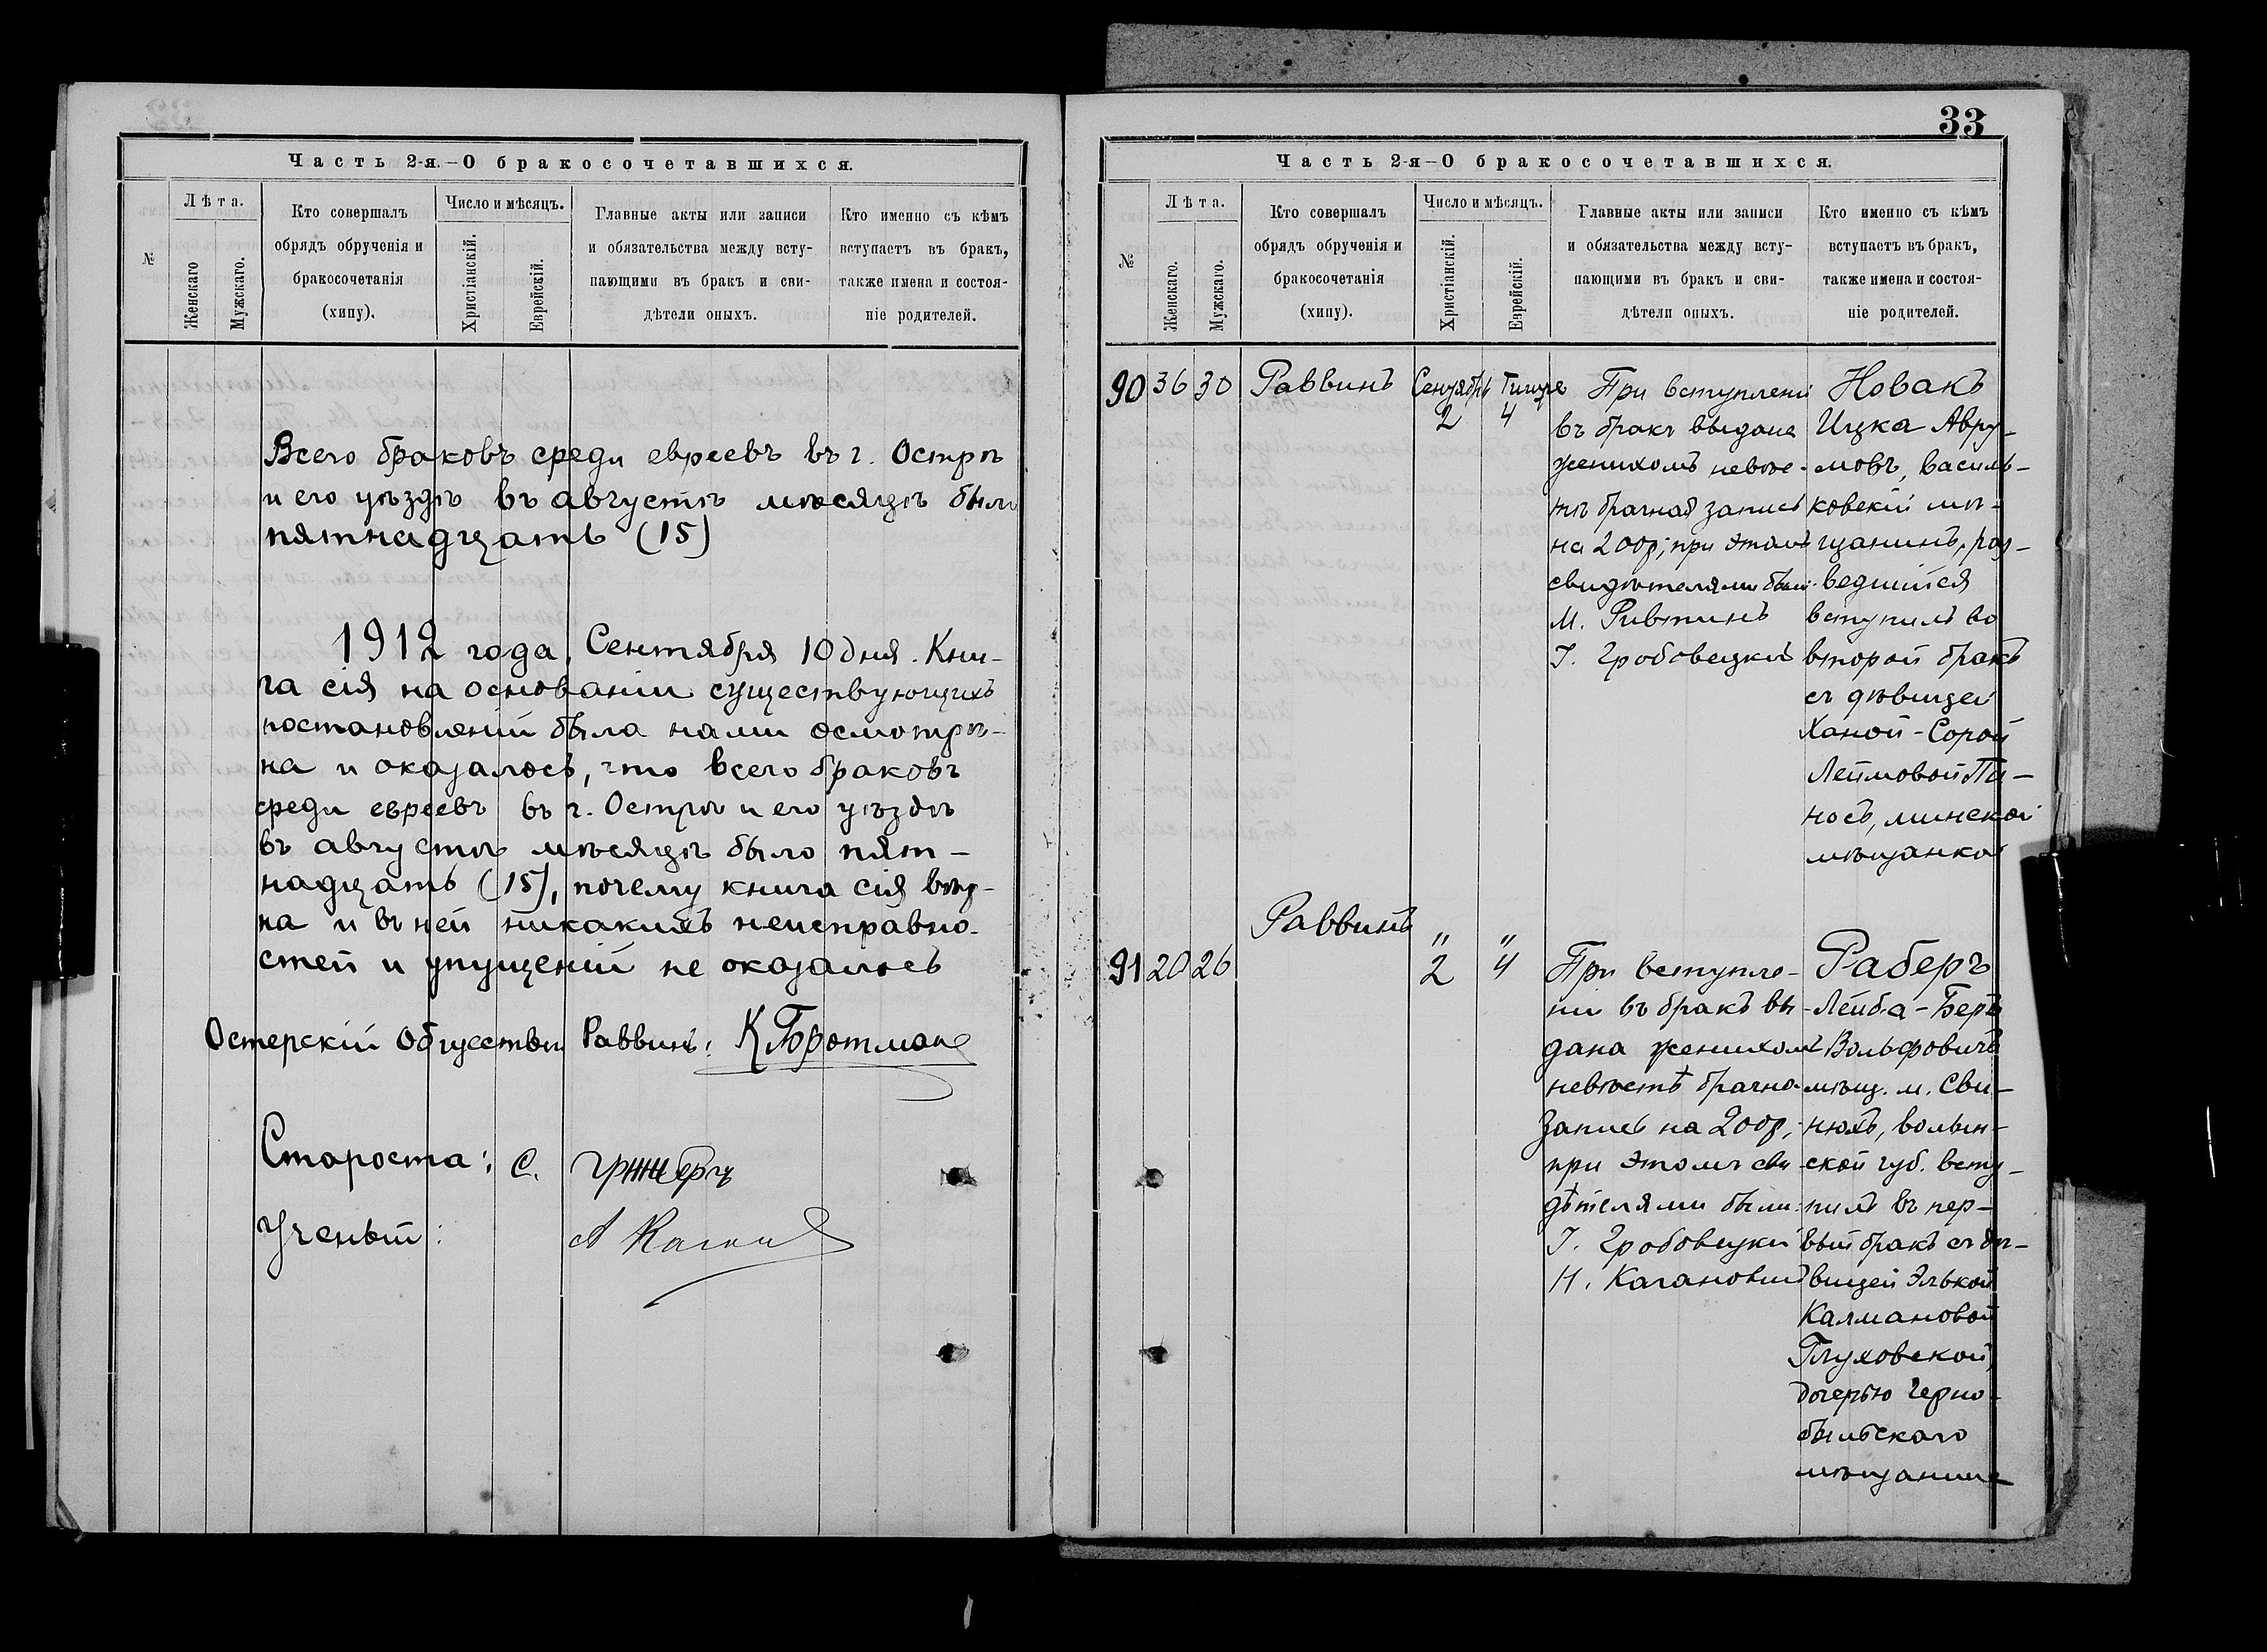 Часть 2-я.—О бракосочетавшихся.
№
Лѣта.
Женскаго
Мужскаго.
Кто совершалъ
обрядъ обрученія и
бракосочетанія
(хипу).
Число и мѣсяцъ.
Христіанскій.
Еврейскій.
Главные акты или записи
и обязательства между всту-
пающими въ бракъ и сви-
дѣтели оныхъ.
Кто именно съ кѣмъ
вступаетъ въ бракъ,
также имена и состоя-
ніе родителей.
Всего браковъ среди евреевъ въ г. Острѣ
и его уѣздѣ въ августѣ мѣсяцѣ было
пятнадцать (15)
1912 года, Сентября 10 дня. Кни-
га сія на основаніи существующихъ
постановленій была нами осмотрѣ-
на и оказалось, что всего браковъ
среди евреевъ въ г. Острѣ и его уѣздѣ
въ августѣ мѣсяцѣ было пят-
надцать (15), почему книга сія вѣр-
на и въ ней никакихъ неисправно-
стей и упущеній не оказалось
Остерскій Обществен Раввинъ: К. Бротманъ
Староста: С.
Ученый: А Каган
33
Часть 2-я—О бракосочетавшихся.
№
Лѣта.
Женскаго.
Мужскаго.
Кто совершалъ
обрядъ обрученія и
бракосочетанія
(хипу).
Число и мѣсяцъ.
Христіанскій.
Еврейскій.
Главные акты или записи
и обязательства между всту-
пающими въ бракъ и сви-
дѣтели оныхъ.
Кто именно съ кѣмъ
вступаетъ въ бракъ,
также имена и состоя-
ніе родителей.
90 36 30 Раввинъ
Сентябрь
2
Тишре
4
При вступлені
въ бракъ выдана
женихомъ невѣс-
тѣ брачная запись
на 200р; при этомъ
свидѣтелями были:
М. Ривтинъ
І. Гробовецкій
Новакъ
Ицка Авру-
мовъ, Василь-
ковскій мѣ-
щанинъ, раз-
ведшійся
вступилъ во
второй бракъ
съ дѣвицей
Ханой-Сорой
Леймовой Пи-
носъ, минской
мѣщанкой
91 20 26 Раввинъ
" 2
" 4
При вступле-
ніи въ бракъ вы-
дана женихомъ
невѣстѣ брачна
запись на 200р;
при этомъ сви-
дѣтелями были:
І. Гробовецкій
Н. Кагановичъ
Раберъ
Лейба-Беръ
Вольфовичъ
мѣщ. м. Сви-
нюхъ, волын-
ской губ. всту-
пилъ въ пер-
вый бракъ съ дѣ-
вицей Элькой
Калмановой
Глуховской,
дочерью Черно-
быльскаго
мѣщанина